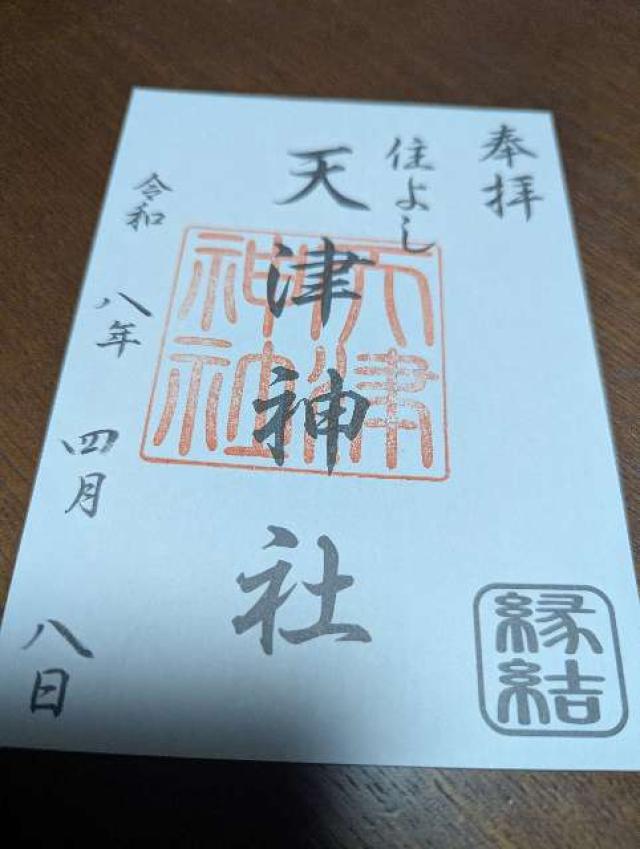 奉拝
住よし
天津神社
天津
神社
令和八年四月八日
縁結